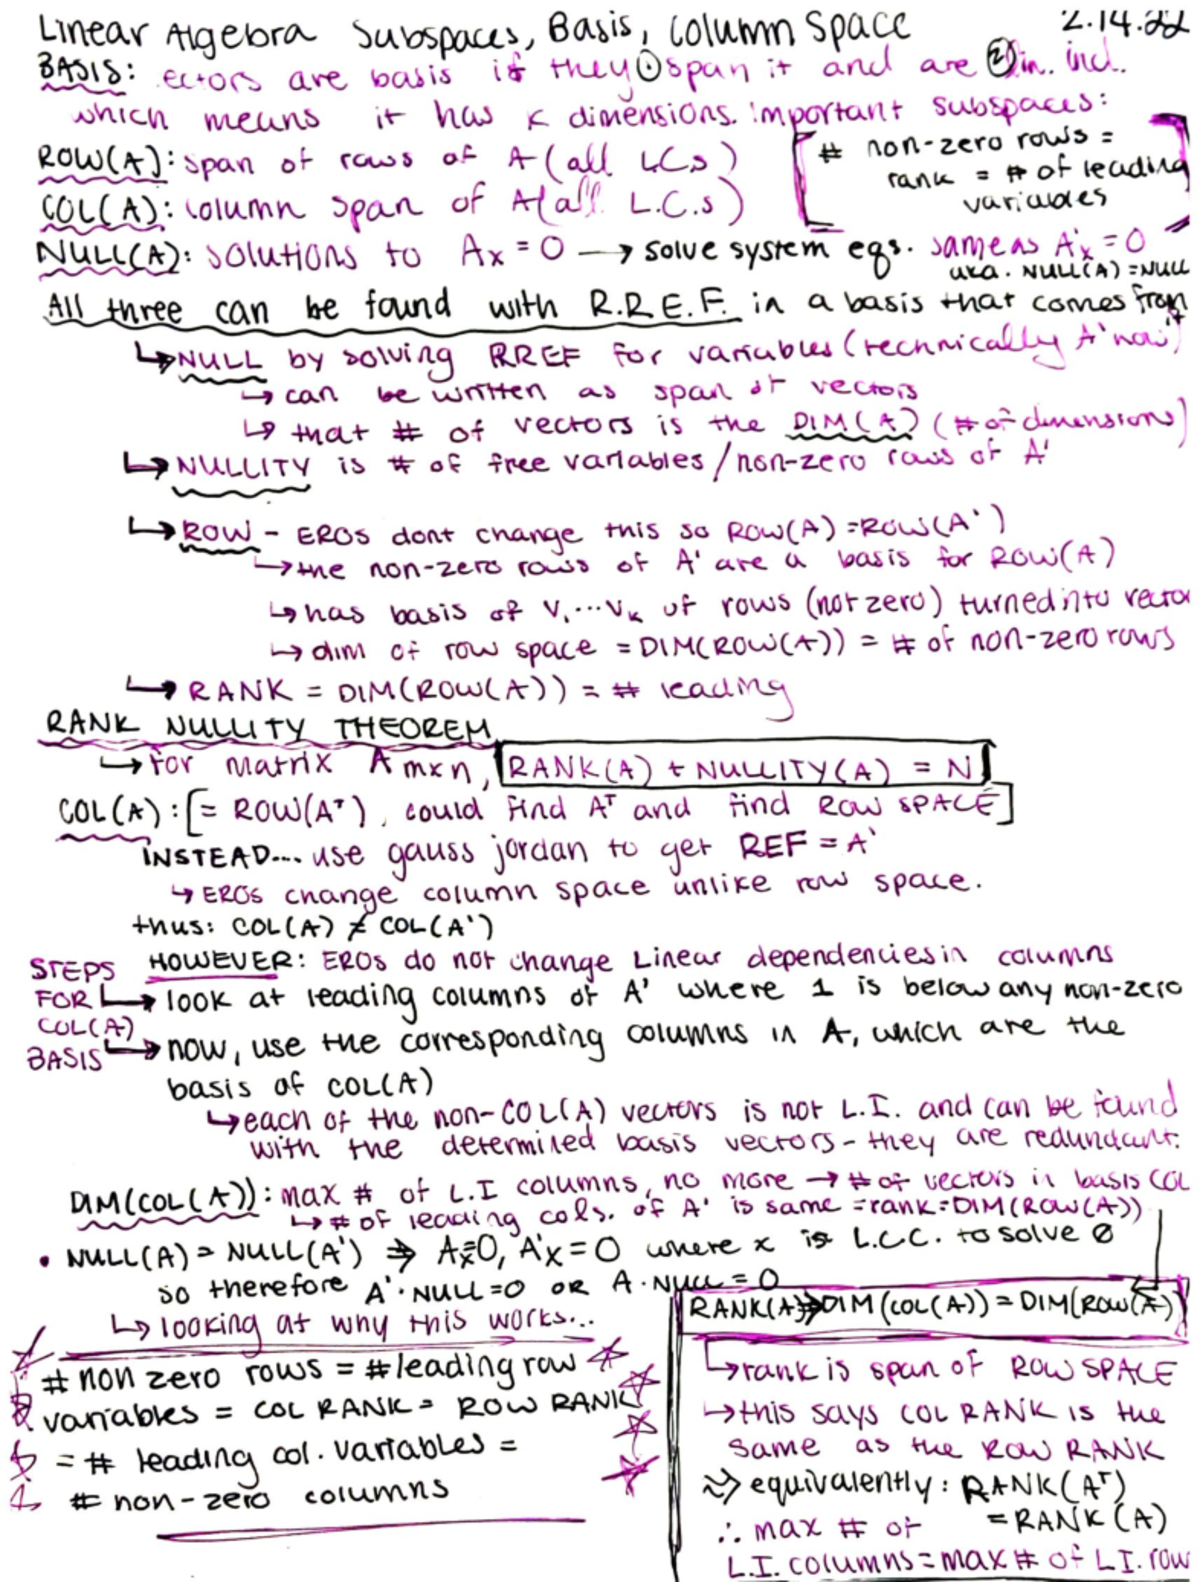 Linear Algebra Subspaces, Basis, Column Space 2.14.22
BASIS: ectors are basis if they ① span it and are ② lin. ind.
which means it has K dimensions. Important subspaces:
ROW(A): span of rows of A (all LCs)
# non-zero rows =
rank = # of leading
variables
COL(A): column span of A (all L.C.s)
NULL(A): solutions to Ax = 0 → solve system eqs. same as A'x = 0
aka. NULL(A) = NULL
All three can be found with R.R.E.F. in a basis that comes from it
↳ NULL by solving RREF for variables (technically A' now)
↳ can be written as span of vectors
↳ that # of vectors is the DIM(A) (# of dimensions)
↳ NULLITY is # of free variables/non-zero rows of A'
↳ ROW - EROs dont change this so ROW(A) = ROW(A')
↳ the non-zero rows of A' are a basis for ROW(A)
↳ has basis of V₁...Vₖ of rows (not zero) turned into vector
↳ dim of row space = DIM(ROW(A)) = # of non-zero rows
↳ RANK = DIM(ROW(A)) = # leading
RANK NULLITY THEOREM
↳ for matrix A mxn, RANK(A) + NULLITY(A) = N
COL(A): [= ROW(Aᵀ), could find Aᵀ and find ROW SPACE]
INSTEAD... use gauss jordan to get REF = A'
↳ EROs change column space unlike row space.
thus: COL(A) ≠ COL(A')
HOWEVER: EROs do not change Linear dependencies in columns
STEPS FOR COL(A) BASIS
↳ look at leading columns of A' where 1 is below any non-zero
↳ now, use the corresponding columns in A, which are the
basis of COL(A)
↳ each of the non-COL(A) vectors is not L.I. and can be found
with the determined basis vectors - they are redundant.
DIM(COL(A)): max # of L.I columns, no more → # of vectors in basis COL
↳ # of leading cols. of A' is same = rank = DIM(ROW(A))
• NULL(A) = NULL(A') ⇒ Ax=0, A'x = 0 where x is L.C.C. to solve 0
so therefore A'·NULL=0 OR A·NULL = 0
↳ looking at why this works...
# non zero rows = # leading row
variables = COL RANK = ROW RANK
= # leading col. variables =
# non-zero columns
RANK(A) ⇒ DIM(COL(A)) = DIM(ROW(A))
↳ rank is span of ROW SPACE
↳ this says COL RANK is the
same as the ROW RANK
⇒ equivalently: RANK(Aᵀ)
= RANK(A)
∴ max # of
L.I. columns = max # of L.I. row